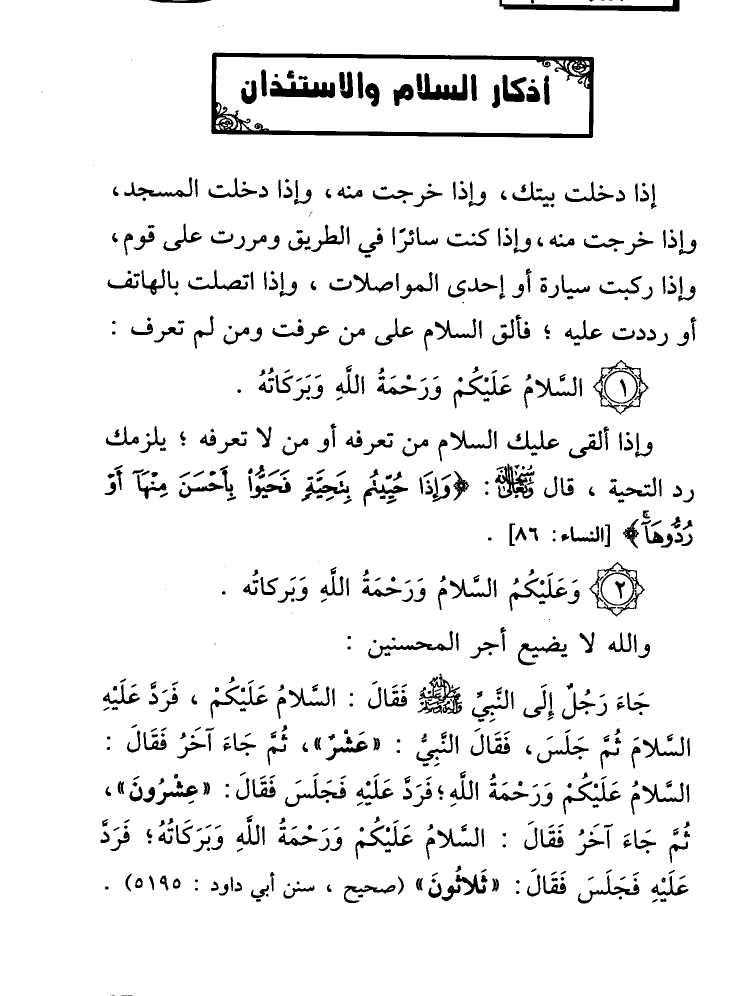 أذكار السلام والاستئذان
إذا دخلت بيتك، وإذا خرجت منه، وإذا دخلت المسجد،
وإذا خرجت منه، وإذا كنت سائرًا في الطريق ومررت على قوم،
وإذا ركبت سيارة أو إحدى المواصلات ، وإذا اتصلت بالهاتف
أو رددت عليه ؛ فألق السلام على من عرفت ومن لم تعرف :
١ السَّلامُ عَلَيْكُمْ وَرَحْمَةُ اللَّهِ وَبَرَكَاتُهُ .
وإذا ألقى عليك السلام من تعرفه أو من لا تعرفه ؛ يلزمك
رد التحية ، قال سبحانه وتعالى : ﴿وَإِذَا حُيِّيتُم بِتَحِيَّةٍ فَحَيُّواْ بِأَحْسَنَ مِنْهَآ أَوْ
رُدُّوهَآۗ﴾ [النساء: ٨٦] .
٢ وَعَلَيْكُمُ السَّلامُ وَرَحْمَةُ اللَّهِ وَبَركاتُه .
والله لا يضيع أجر المحسنين :
جَاءَ رَجُلٌ إِلَى النَّبِيِّ ﷺ فَقَالَ : السَّلامُ عَلَيْكُمْ ، فَرَدَّ عَلَيْهِ
السَّلامَ ثُمَّ جَلَسَ، فَقَالَ النَّبِيُّ : «عَشْرٌ»، ثُمَّ جَاءَ آخَرُ فَقَالَ :
السَّلامُ عَلَيْكُمْ وَرَحْمَةُ اللَّهِ؛ فَرَدَّ عَلَيْهِ فَجَلَسَ فَقَالَ: «عِشْرُونَ»،
ثُمَّ جَاءَ آخَرُ فَقَالَ : السَّلامُ عَلَيْكُمْ وَرَحْمَةُ اللَّهِ وَبَرَكَاتُهُ؛ فَرَدَّ
عَلَيْهِ فَجَلَسَ فَقَالَ: «ثَلاثُونَ» (صحيح ، سنن أبي داود : ٥١٩٥) .